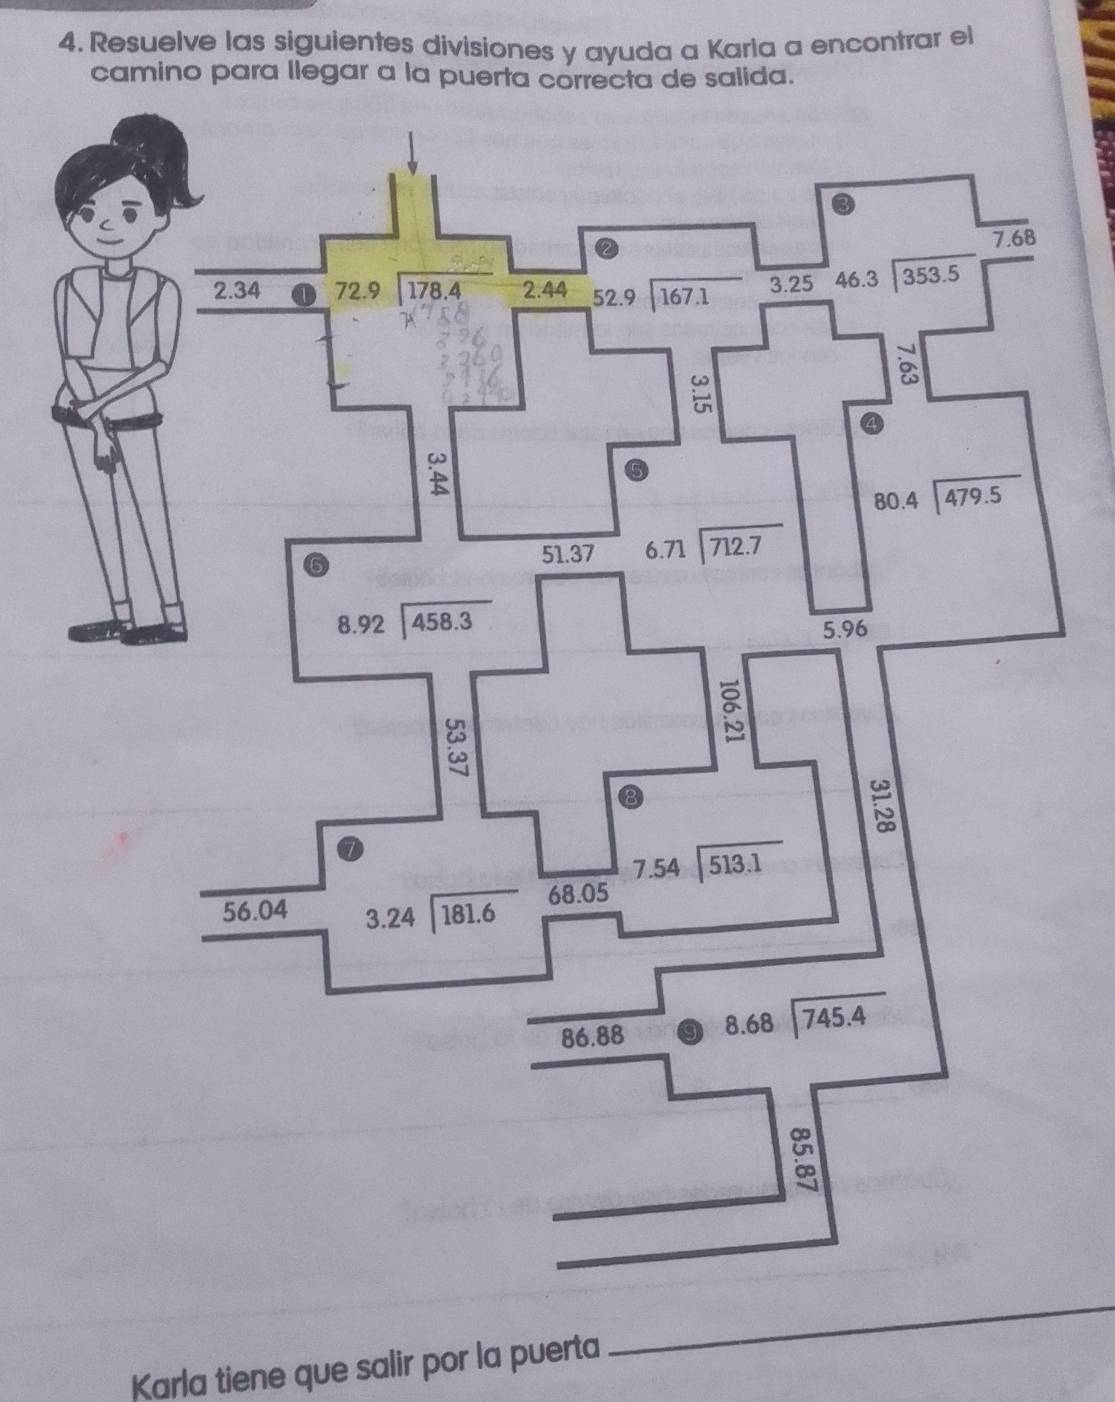 4. Resuelve las siguientes divisiones y ayuda a Karla a encontrar el
camino para llegar a la puerta correcta de salida.
3
7.68
2
2.34 1 72.9 178.4 2.44 52.9 167.1 3.25 46.3 353.5
7.63
3.15
4
3.44
5
80.4 479.5
51.37 6.71 712.7
6
8.92 458.3
5.96
106.21
53.37
8
31.28
7
7.54 513.1
56.04 3.24 181.6 68.05
86.88 9 8.68 745.4
85.87
Karla tiene que salir por la puerta